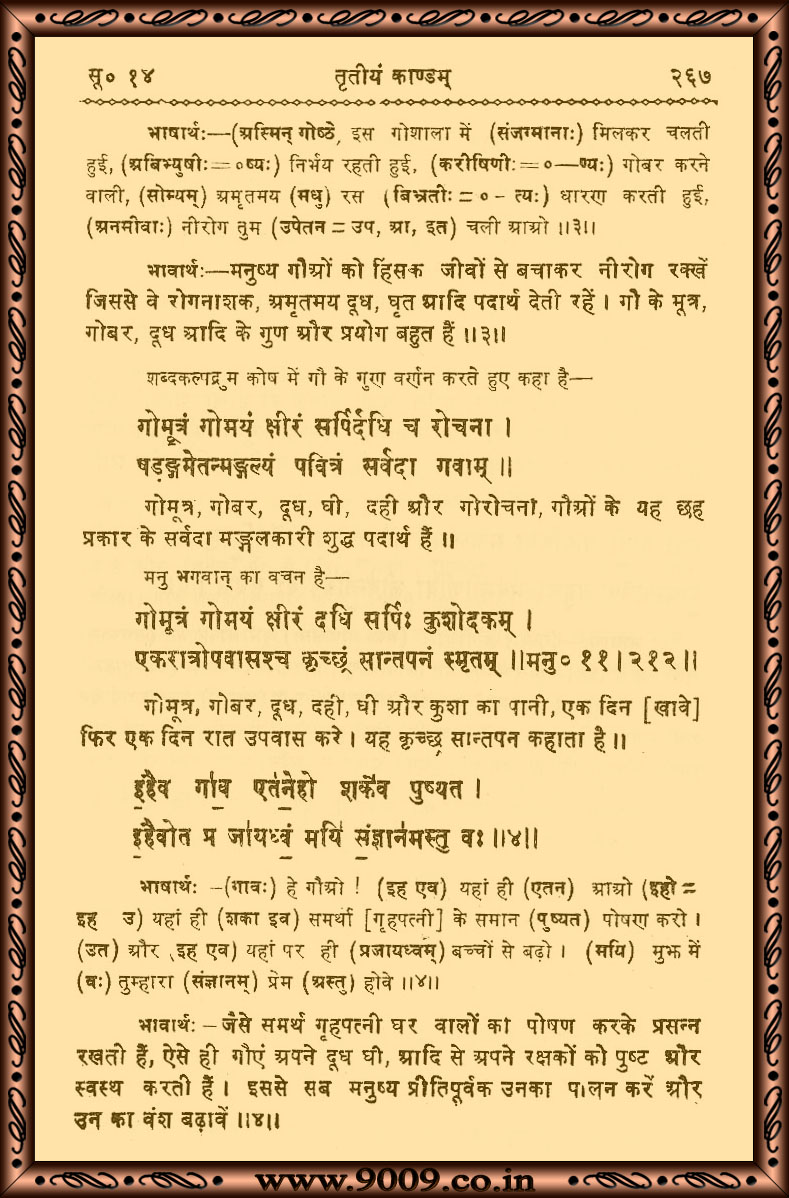 सू० १४ तृतीयं काण्डम् २६७
भाषार्थः—(अस्मिन् गोष्ठे, इस गोशाला में (संजग्मानाः) मिलकर चलती
हुई, (अबिभ्युषीः=०ष्यः) निर्भय रहती हुई, (करीषिणीः=०—ण्यः) गोबर करने
वाली, (सोम्यम्) अमृतमय (मधु) रस (बिभ्रतीः = ० - त्यः) धारण करती हुई,
(अनमीवाः) नीरोग तुम (उपेतन = उप, आ, इत) चली आओ ॥३॥
भावार्थः—मनुष्य गौओं को हिंसक जीवों से बचाकर नीरोग रक्खें
जिससे वे रोगनाशक, अमृतमय दूध, घृत आदि पदार्थ देती रहें । गौ के मूत्र,
गोबर, दूध आदि के गुण और प्रयोग बहुत हैं ॥३॥
शब्दकल्पद्रुम कोष में गौ के गुण वर्णन करते हुए कहा है—
गोमूत्रं गोमयं क्षीरं सर्पिर्दधि च रोचना ।
षडङ्गमेतन्मङ्गल्यं पवित्रं सर्वदा गवाम् ॥
गोमूत्र, गोबर, दूध, घी, दही और गोरोचना, गौओं के यह छह
प्रकार के सर्वदा मङ्गलकारी शुद्ध पदार्थ हैं ॥
मनु भगवान् का वचन है—
गोमूत्रं गोमयं क्षीरं दधि सर्पिः कुशोदकम् ।
एकरात्रोपवासश्च कृच्छ्रं सान्तपनं स्मृतम् ॥मनु० ११।२१२॥
गोमूत्र, गोबर, दूध, दही, घी और कुशा का पानी, एक दिन [खावे]
फिर एक दिन रात उपवास करे । यह कृच्छ्र सान्तपन कहाता है ॥
इ॒हैव गा॑व॒ एत॑ने॒हो शके॑व पुष्यत ।
इ॒हैवोत प्र जा॑यध्वं॒ मयि॑ सं॒ज्ञान॑मस्तु वः ॥४॥
भाषार्थः -(गावः) हे गौओ ! (इह एव) यहां ही (एतन) आओ (इहो =
इह उ) यहां ही (शका इव) समर्था [गृहपत्नी] के समान (पुष्यत) पोषण करो ।
(उत) और (इह एव) यहां पर ही (प्रजायध्वम्) बच्चों से बढ़ो । (मयि) मुझ में
(वः) तुम्हारा (संज्ञानम्) प्रेम (अस्तु) होवे ॥४॥
भावार्थः - जैसे समर्थ गृहपत्नी घर वालों का पोषण करके प्रसन्न
रखती हैं, ऐसे ही गौएं अपने दूध घी, आदि से अपने रक्षकों को पुष्ट और
स्वस्थ करती हैं । इससे सब मनुष्य प्रीतिपूर्वक उनका पालन करें और
उन का वंश बढ़ावें ॥४॥
www.9009.co.in